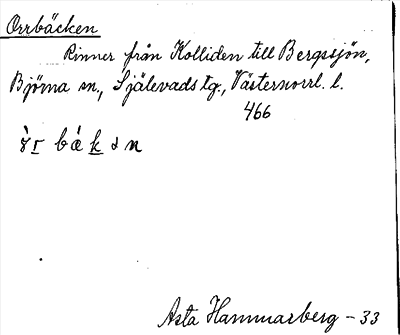 Orrbäcken
Rinner från Kolliden till Bergssjön,
Björna sn., Själevads tg., Västernorrl. l.
466
bǽkən
Asta Hammarberg - 33